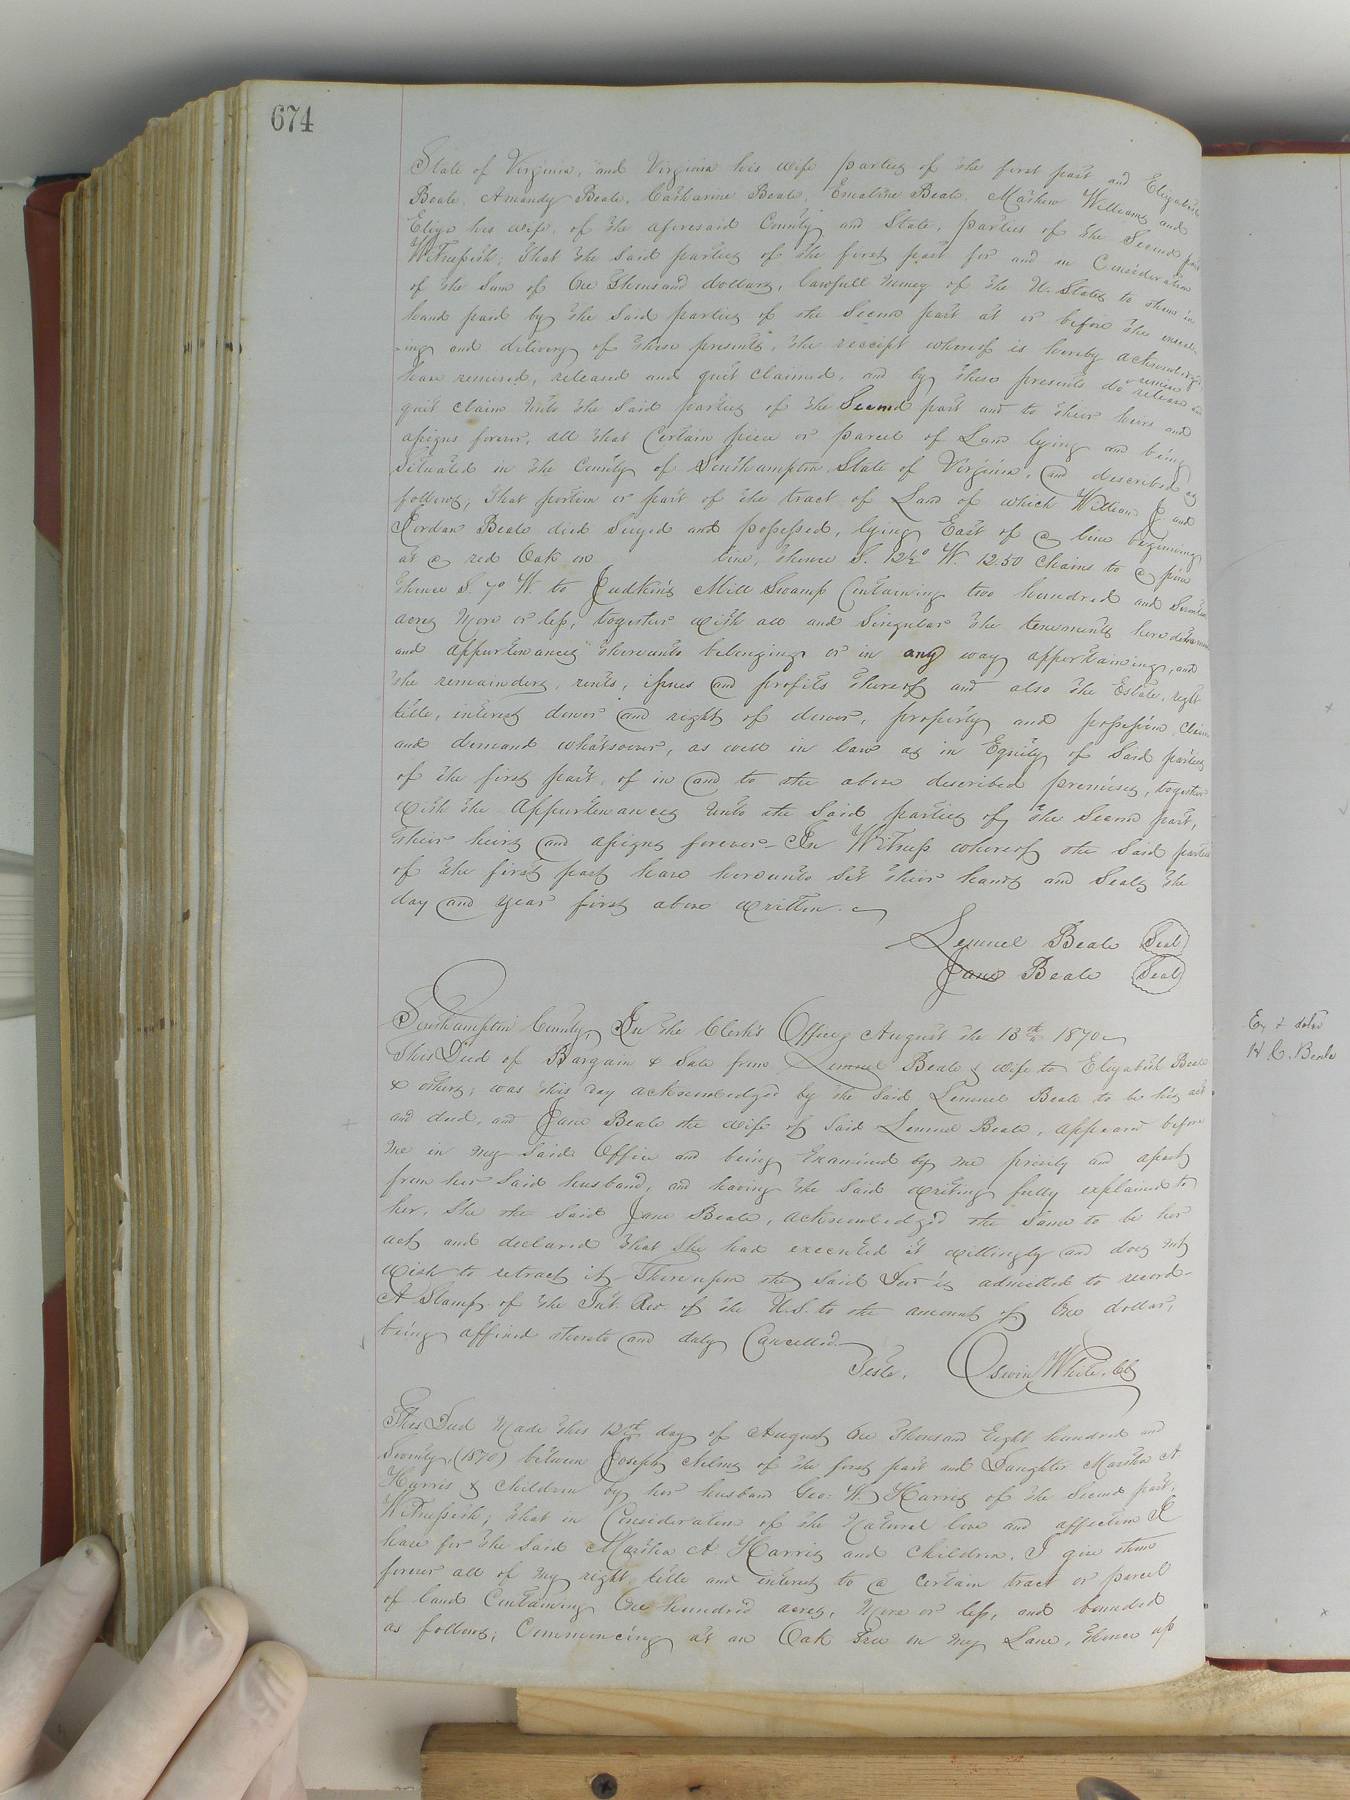 674
State of Virginia, and Virginia his wife parties of the first part and Elizabeth
Beale, Amandy Beale, Catharine Beale, Emeline Beale, Mathew Williams and
Eliza his wife, of the aforesaid County and State, parties of the Second part
Witnesseth, that the said parties of the first part for and in Consideration
of the Sum of One Thousand dollars, lawfull money of the U. States to them in
hand paid by the said parties of the Second part at or before the enseal-
-ing and delivery of these presents, the receipt whereof is hereby acknowledged
have remised, released and quit claimed, and by these presents do remise release and
quit claim unto the said parties of the Second part and to their heirs and
assigns forever, all that Certain piece or parcel of Land lying and being
situated in the County of Southampton State of Virginia, and described as
follows; that portion or part of the tract of Land of which William J and
Jordan Beale died Seized and possessed, lying East of a line beginning
at a red Oak on line, thence S. 12½° W. 12.50 Chains to a pine
thence S. 7° W. to Judkins Mill Swamp Containing two hundred and
acres more or less, together with all and Singular the tenements hereditaments
and appurtenances thereunto belonging or in any way appertaining, and
the remainders, rents, issues and profits thereof and also the Estate, right
title, interest dower and right of dower, property and possession, claim
and demand whatsoever, as well in law as in Equity, of said parties
of the first part, of in and to the above described premises, together
with the appurtenances unto the said parties of the Second part,
their heirs and assigns forever. In Witness whereof the said parties
of the first part have hereunto Set their hands and Seals the
day and year first above written.
Lemuel Beale (Seal)
Jane Beale (Seal)
Southampton County, In the Clerk's Office August the 13th 1870
This Deed of Bargain & Sale from Lemuel Beale & wife to Elizabeth Beale
& others, was this day acknowledged by the said Lemuel Beale to be his act
and deed, and Jane Beale the wife of said Lemuel Beale, appeared before
me in my said Office and being Examined by me privily and apart
from her said husband, and having the said writing fully explained to
her, She the said Jane Beale, acknowledged the same to be her
act, and declared that She had executed it willingly and does not
wish to retract it. Thereupon the said Deed is admitted to record.
A Stamp of the Int. Rev. of the U.S. to the amount of One dollar,
being affixed thereto and duly Cancelled.
Teste, Oswin White, CC
This Deed made this 12th day of August One Thousand Eight hundred and
Seventy, (1870) between Joseph Nelms of the first part and Daughter Martha A
Harris & Children by her husband Geo: W. Harris of the Second part,
Witnesseth; that in Consideration of the Natural love and affection I
have for the said Martha A. Harris and Children, I give them
forever all of my right title and interest to a certain tract or parcel
of land Containing One hundred acres, more or less, and bounded
as follows; Commencing at an Oak tree on my Lane, thence up
H. C. Beale